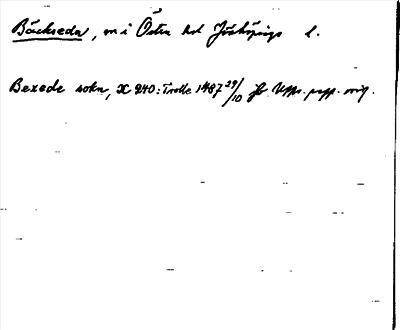 Bäckseda, sn i Östra hd Jönköpings l.
Bexede sokn, X 240: Trolle 1487 29/10 fr Upps. papp. orig.